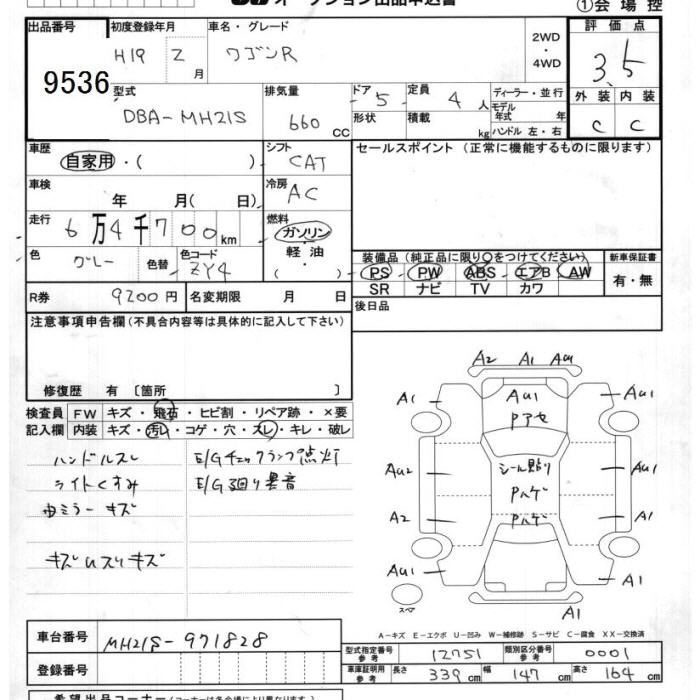 オークション出品申込書
①会場控
出品番号 初度登録年月 車名・グレード 評価点
H19 2月 ワゴンR 2WD・4WD 3.5
9536
型式 排気量 ドア 定員 ディーラー・並行 外装 内装
DBA-MH21S 660 CC 5 4人 モデル年式 年 C C
形状 積載 kg ハンドル 左・右
車歴 シフト セールスポイント (正常に機能するものに限ります)
自家用・( ) CAT
車検 冷房
年 月(日) AC
走行 燃料
6万4千700km ガソリン・軽油( )
色 色替 色コード 装備品 (純正品に限り○をつけてください) 新車保証書
グレー ZY4 PS PW ABS エアB AW 有・無
SR ナビ TV カワ
R券 9200円 名変期限 月 日 後日品
注意事項申告欄 (不具合内容等は具体的に記入して下さい)
修復歴 有 〔箇所 〕
検査員 FW キズ・飛石・ヒビ割・リペア跡・×要
記入欄 内装 キズ・汚れ・コゲ・穴・スレ・キレ・破レ
ハンドルスレ E/Gチェックランプ点灯
ライトくすみ E/G廻り異音
内ミラーキズ
キズUスリキズ
A2 A1 AU1
A1 AU1 AU1
Pアセ
AU2 シール貼り AU1
Pハゲ
A2 Pハゲ A1
AU1 A1
スペア A1
A-キズ E-エクボ U-凹み W-補修跡 S-サビ C-腐食 XX-交換済
車台番号 MH21S-971828
型式指定番号 参考 12751 類別区分番号 参考 0001
登録番号
車庫証明用 参考 長さ 339cm 幅 147cm 高さ 164cm
希望出品コーナー(コーナーは各会場により異なります)